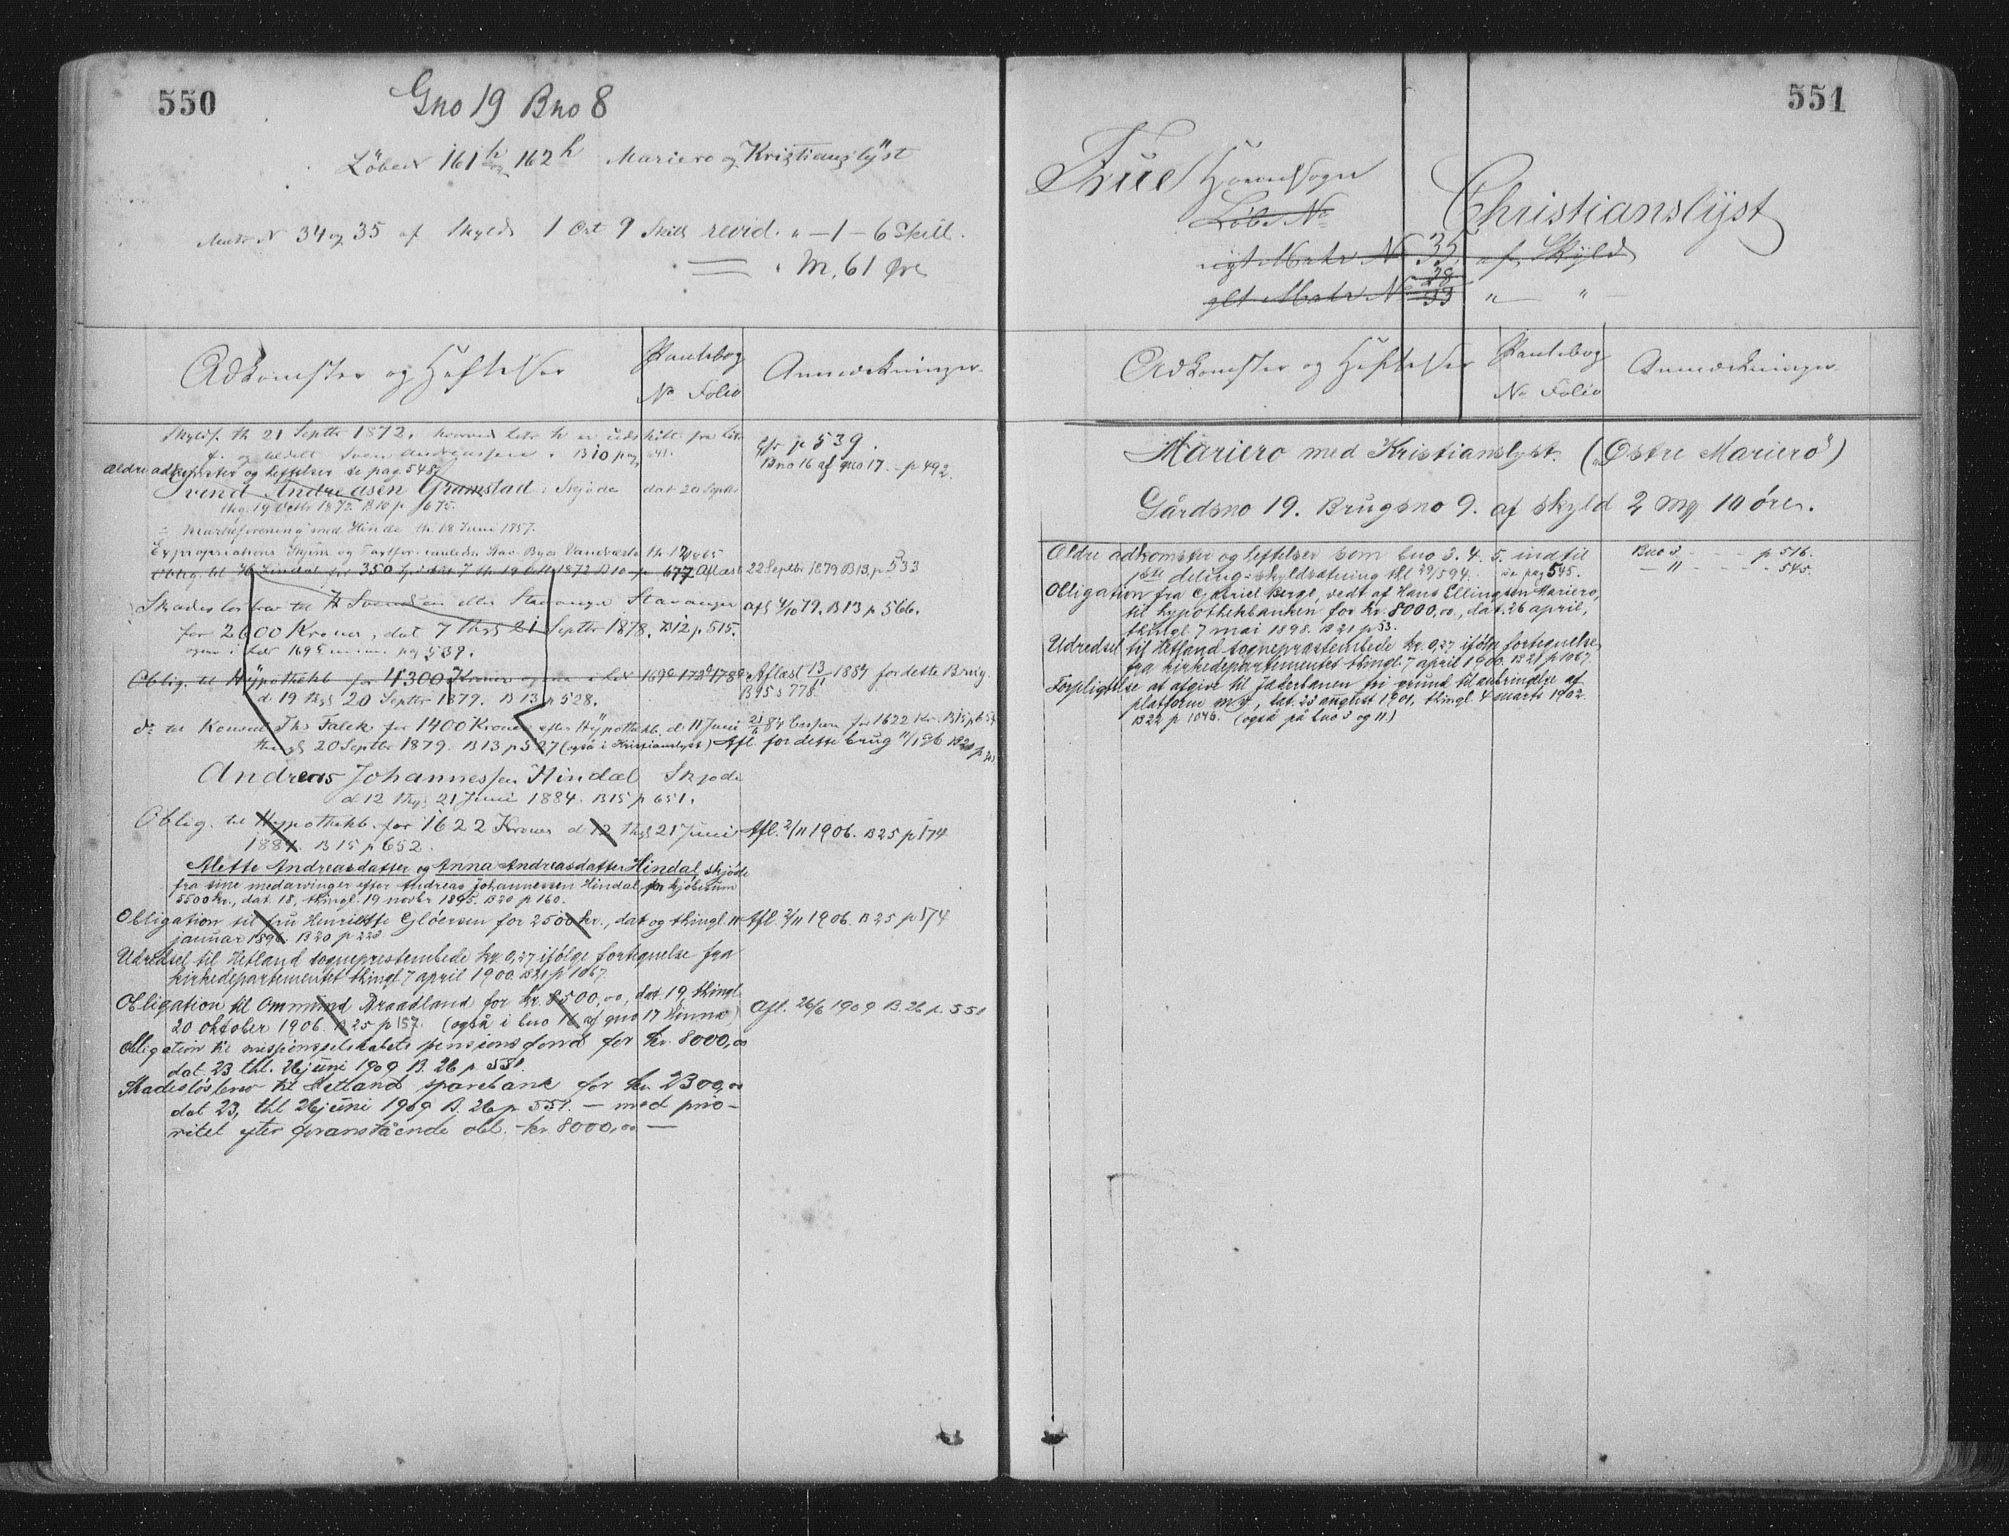 550
Gno 19 Bno 8
Löbe N 161 h og 162 h Mariero og Kristianslyst
Matr N 34 og 35 af Skyld 1 Ort 9 Skill revid. " — 1 — 6 Skill.
M, 61 Øre
Adkomster og Heftelser
Pantebog
No Folio
Anmærkninger
Skyldf. th 21 Septbr 1872, hvorved er udskilt fra
B 10 pag
Cfr p 539.
Bno 16 af gno 17 - p 492
Ældre adkomster og heftelser se pag 548
Svend Andreasen Gramstad Skjøde dat 20 Septbr
thg. 19 Octbr 1872 B 10 p 675.
Hinde th 18 Juni 1757.
Expropriations og Stav. Byes Vandværk th
Oblig. til Hindal for 350 th 19 1872 B 10 p 677 Aflæst 22 Septbr 1879 B 13 p 533
Skadesløsbrev til Svendsen eller Stavanger
for 2600 Kroner, dat 7 thgl 21 Septbr 1878. B 12 p 515.
pag 539.
Afl 4/10 79. B 13 p 566.
Oblig. til Hÿpothekb for 4300 Kroner
d 19 thgl 20 Septbr 1879. B 13 p 528.
Aflæst 13/11 1884 for dette Brug.
B 15 p 778.
do til Konrad Ths Falck for 1400 Kroner efter Hÿpothekb. d 11 Juni
thgl 20 Septbr 1879. B 13 p 527 (også i Kristianslyst) Afl. for dette brug
Andreas Johannessen Hindal Skjøde
d 12 thgl 21 Juni 1884. B 15 p 651.
Oblig. til Hypothekb. for 1622 Kroner d 12 thgl 21 Juni
1884. B 15 p 652.
Afl. 2/11 1906. B 25 p 174
Mette Andreasdatter og Anna Andreasdatter Hindal, skjøde
fra sine medarvinger efter Andreas Johannessen Hindal for kjøbesum
5500 kr., dat. 18, thingl. 19 novbr 1895. B 20 p 160.
Obligation til fru Henriette Gloersen for 2500 kr., dat og thingl. 11
januar 1896. B 20 p 223
Afl. 2/11 1906. B 25 p 174
Udredsel til Hetland sogneprestembede kr. 0,27 ifølge fortegnelse fra
kirkedepartementet thingl 7 april 1900 B 21 p 1067.
Obligation til Ommund Braadland for kr. 8500,00, dat. 19, thingl.
20 oktober 1906. B 25 p 157. (også i bno 16 af gno 17 Hinna)
Afl. 26/6 1909 B. 26 p. 551
Obligation til missionsselskabets pensionsfond for kr. 8000,00
dat 23 thl. 26 juni 1909 B. 26 p 551.
Skadesløsbrev til Hetland sparebank for kr. 2300,00
dat 23, thl 26 juni 1909 B. 26 p 551. — med prio-
ritet efter foranstående obl. kr. 8000,00 —
551
Frue Hovedsogn
Löbe No
nyt Matr No 35 af Skyld
glt Matr No
Christianslÿst
Adkomster og Heftelser
Pantebog
No Folio
Anmærkninger
Mariero med Kristianslyst. ("Østre Mariero")
Gårdsno 19. Brugsno 9. af skyld 2 mg 10 öre.
Ældre adkomster og heftelser som bno 3. 4. 5. indtil
1ste deling - skyldsætning thl 29/5 94. se pag 545.
Bno 3 - - - - p 516.
— " - - - - 545.
Obligation fra Gabriel Berge, vedt. af Hans Ellingsen Mariero,
til hypothekbanken for kr. 8000,00, dat. 26 april,
thingl. 7 mai 1898. B 21 p 53.
Udredsel til Hetland sogneprestembede kr. 0,27 ifölge fortegnelse
fra kirkedepartementet thingl. 7 april 1900. B 21 p 1067.
Forpligtelse at afgive til Jæderbanen fri grund til anbringelse af
platform m.v., dat. 23 august 1901, thingl. 4 marts 1902.
B 22 p 1046. (også på bno 3 og 11.)